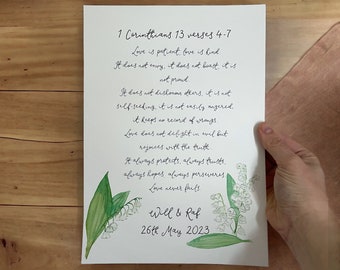 1 Corinthians 13 verses 4-7
Love is patient, love is kind
It does not envy, it does not boast, it is
not proud
It does not dishonour others, it is not
self-seeking, it is not easily angered,
it keeps no record of wrongs
Love does not delight in evil but
rejoices with the truth
It always protects, always trusts,
always hopes, always perseveres
Love never fails
Will & Raf
26th May 2023